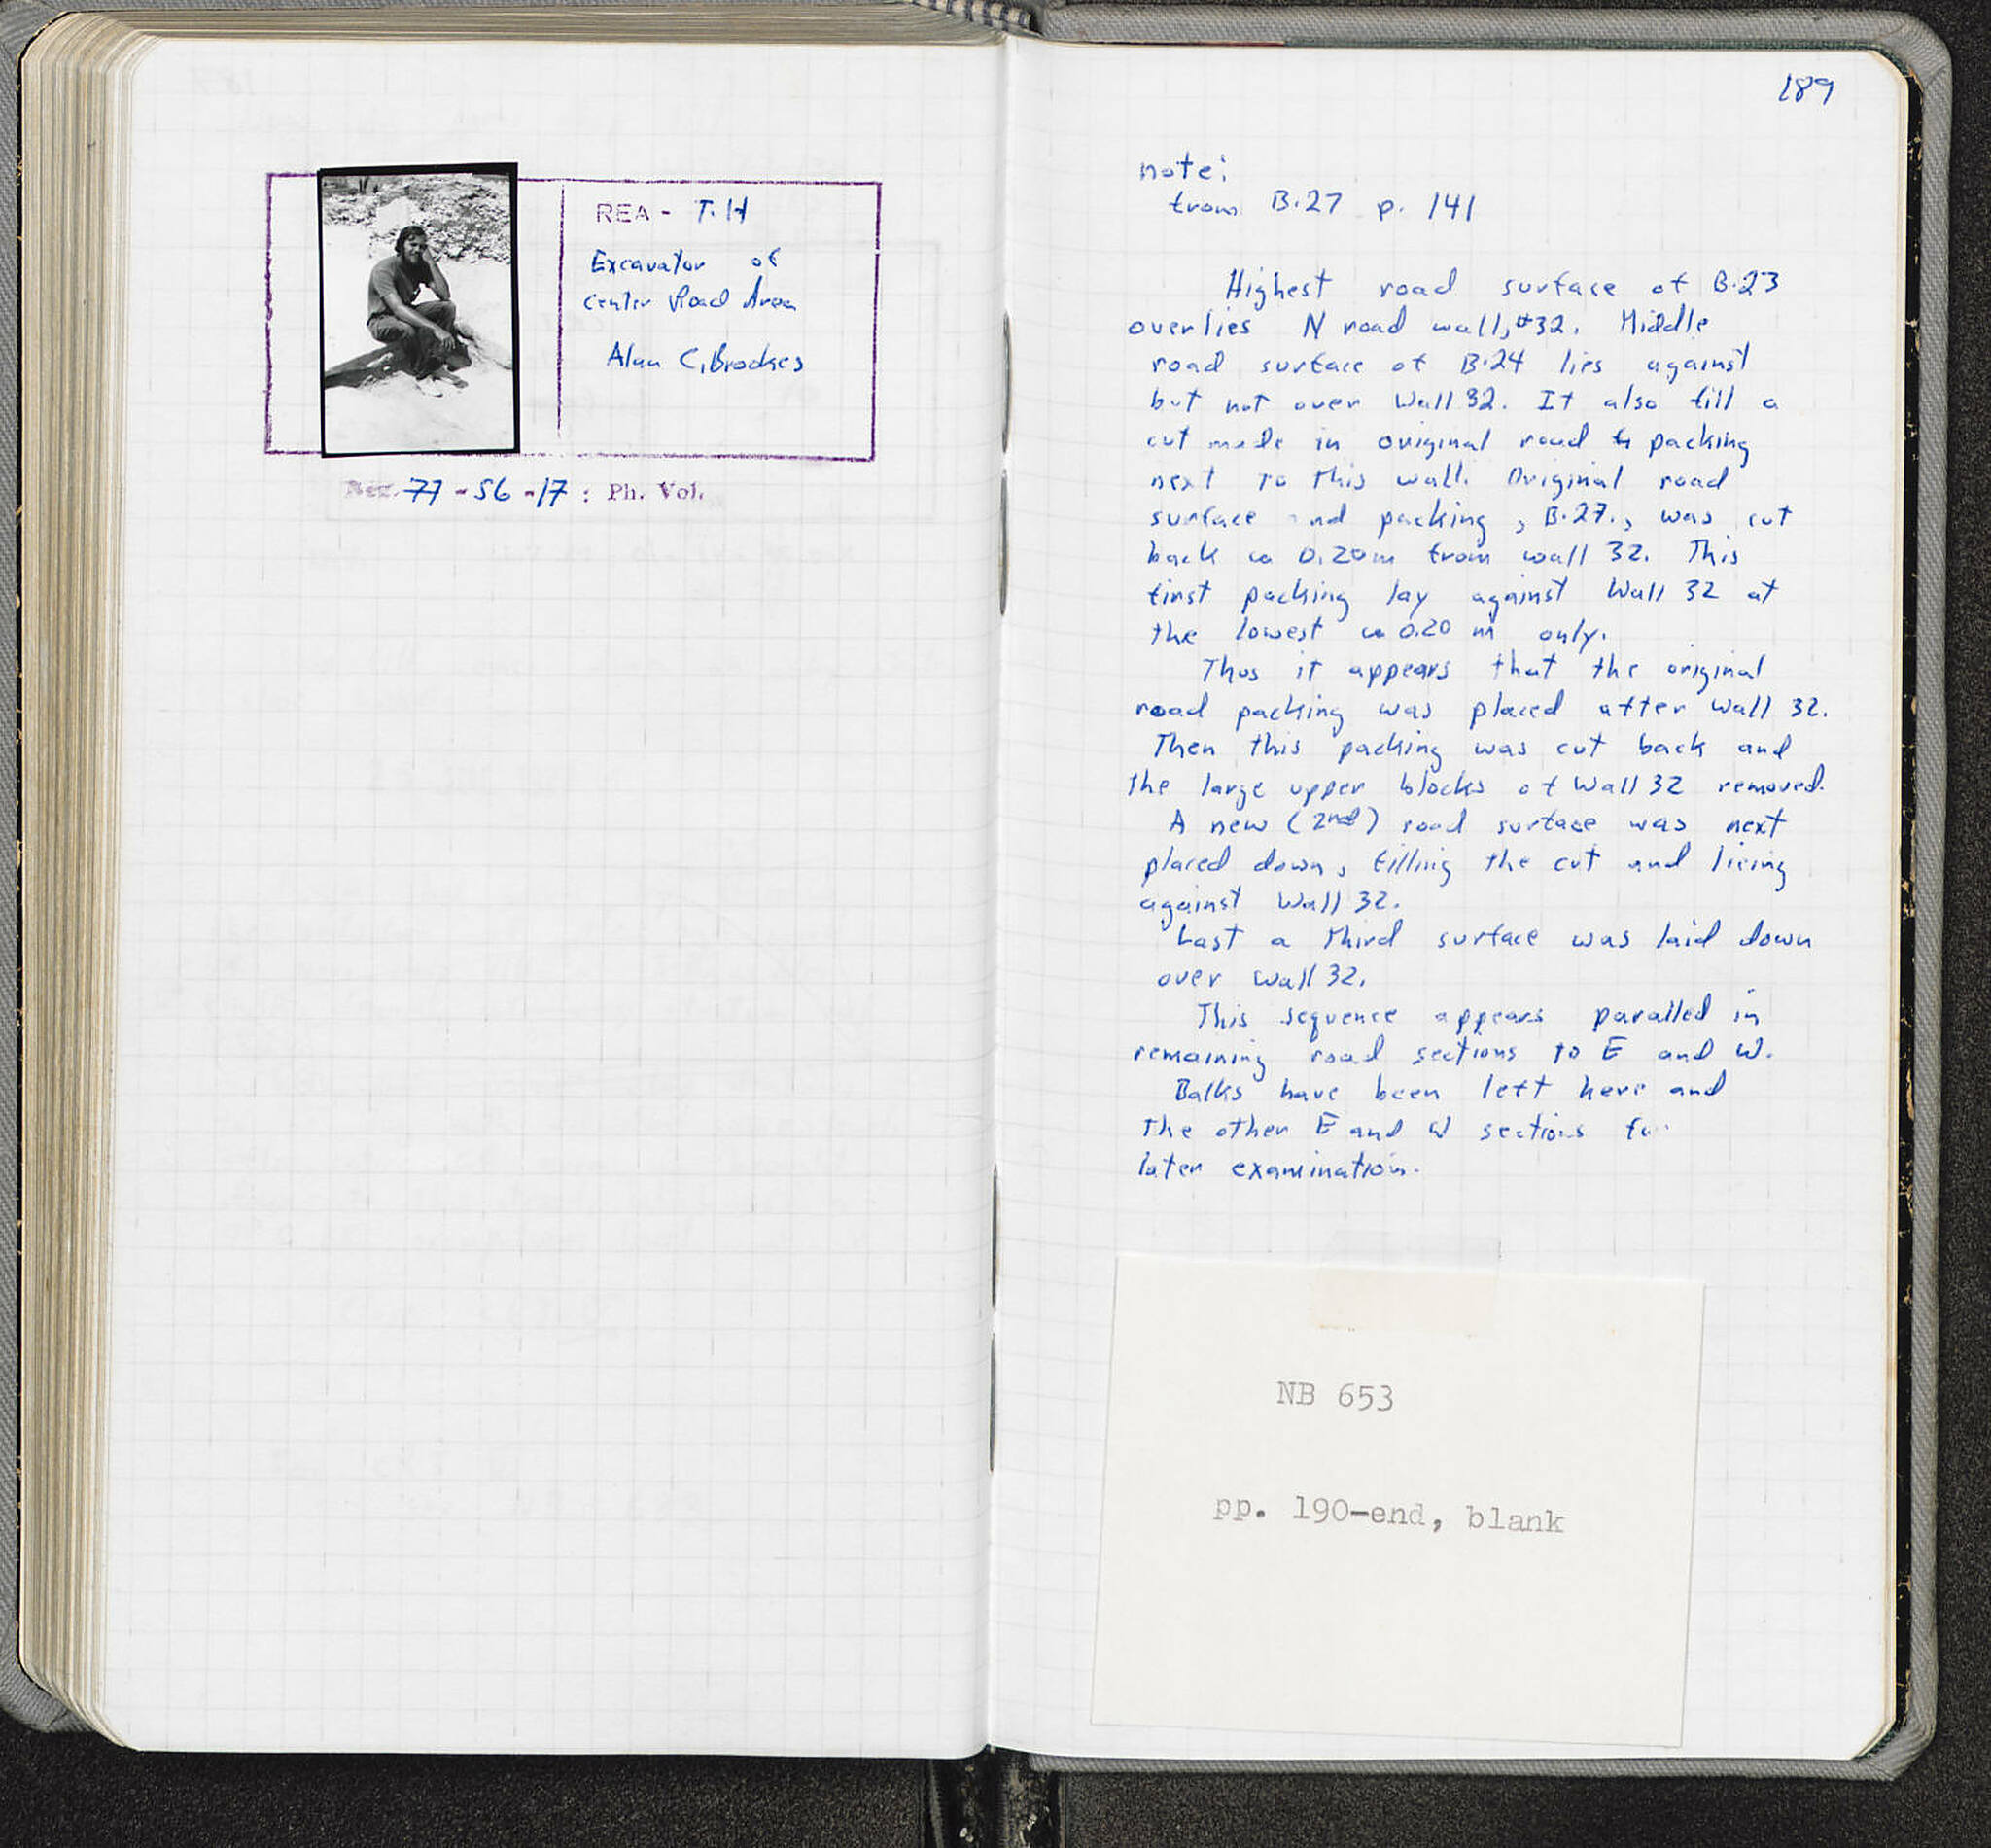 REA - T.H
Excavator of
Center Road Area
Alan C. Brookes
Neg. 77-56-17 : Ph. Vol.
189
note:
from B.27 p. 141
Highest road surface of B.23
overlies N road wall, #32. Middle
road surface of B.24 lies against
but not over Wall 32. It also fill a
cut made in original road & packing
next to this wall. Original road
surface and packing, B.27., was cut
back ca 0.20m from wall 32. This
first packing lay against Wall 32 at
the lowest ca 0.20 m only.
Thus it appears that the original
road packing was placed after Wall 32.
Then this packing was cut back and
the large upper blocks of Wall 32 removed.
A new (2nd) road surface was next
placed down, filling the cut and lieing
against Wall 32.
Last a third surface was laid down
over Wall 32.
This sequence appears paralled in
remaining road sections to E and W.
Balks have been left here and
the other E and W sections for
later examination.
NB 653
pp. 190-end, blank